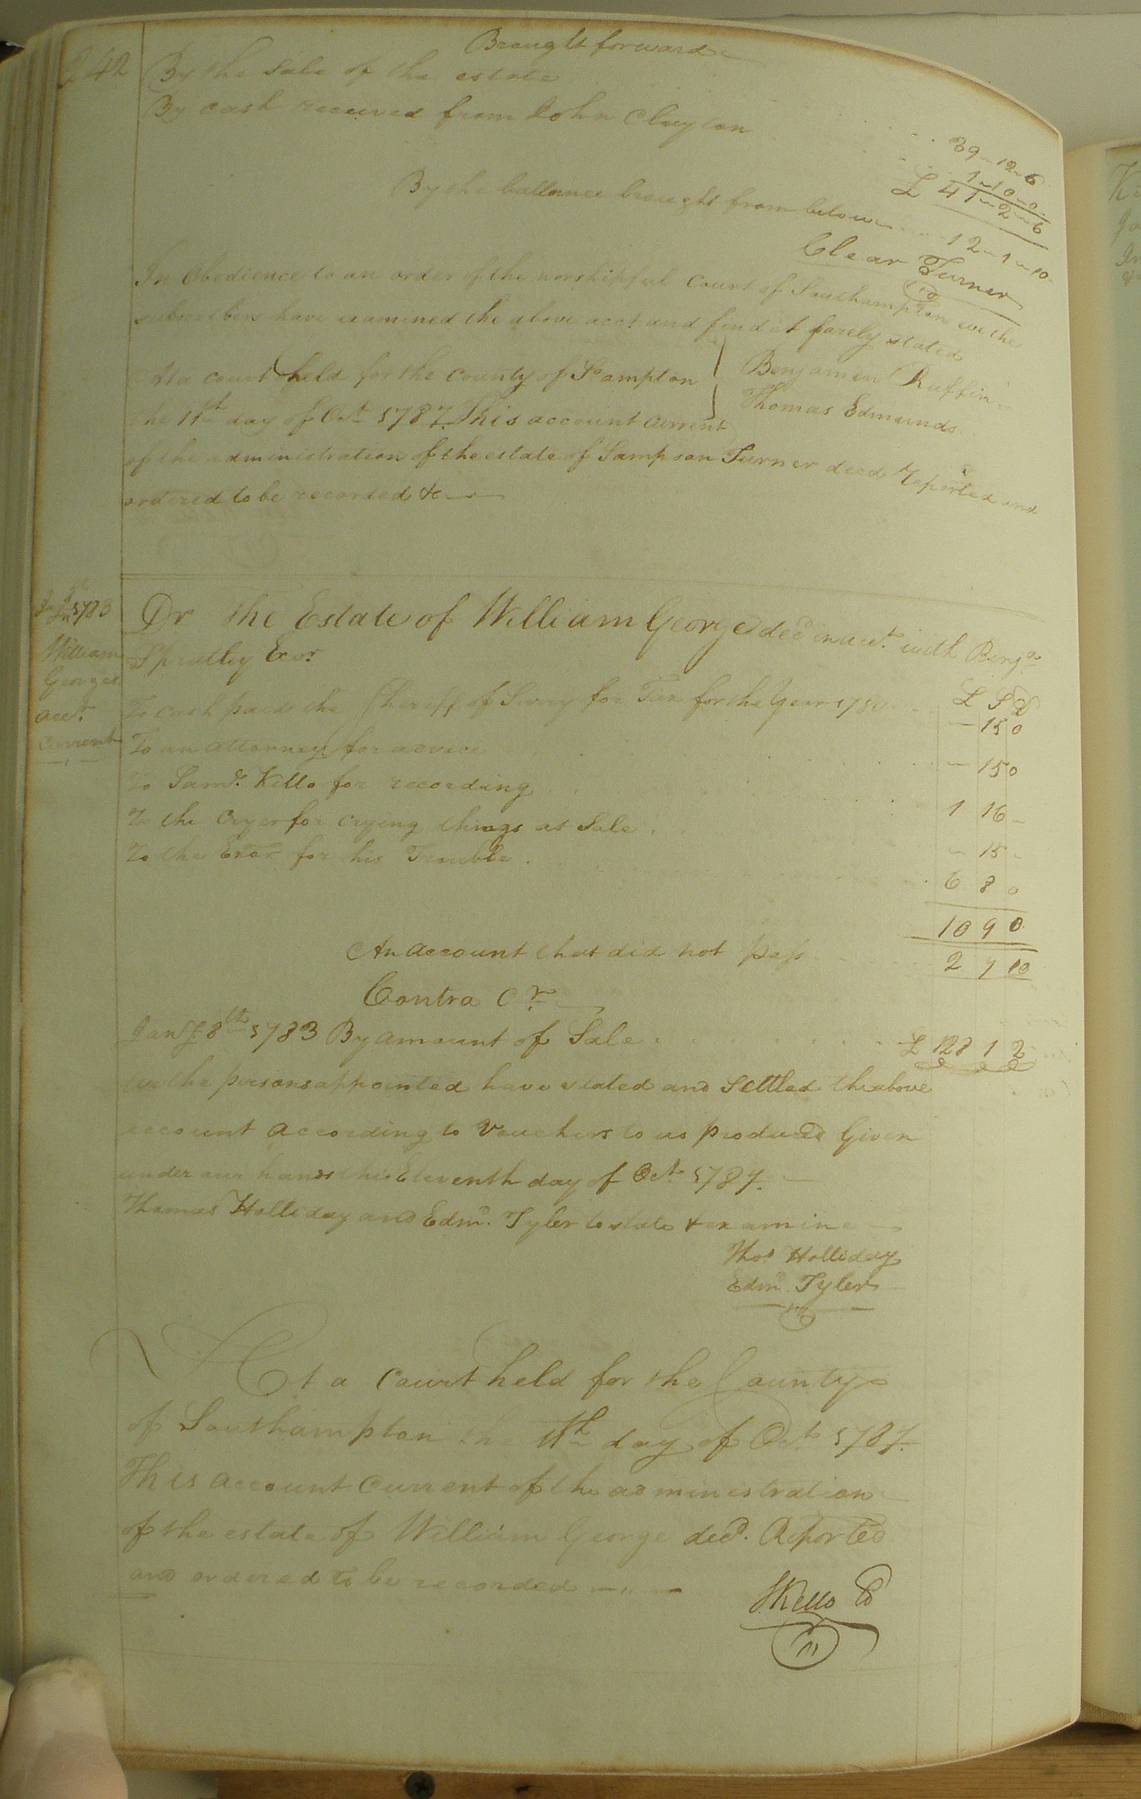 242
Brought forward
By the Sale of the estate
39 - 12 - 6
By cash received from John Clayton
1 - 10 - 0
£ 41 - 2 - 6
By the ballance brought from below
12 - 1 - 10
Clear Turner
In Obedience to an order of the worshipful Court of Southampton we the
subscribers have examined the above acct and find it farely stated
Benjamen Ruffin
Thomas Edmunds
At a court held for the County of So ampton
the 11th day of Octr 1787 This account Current
of the administration of the estate of Sampson Turner deced Reported and
ordered to be recorded &c
1783
William
Georges
acct
Current
Dr the Estate of William George decd in acct with Benja
Spratley Exor
£ S D
To cash paid the Sheriff of Surry for Tax for the Year
- 15 0
To an attorney for advice
- 15 0
To Saml Kello for recording
1 16 -
To the Cryer for crying things at Sale
- 15 -
To the Exor for his Trouble
6 8 0
10 9 0
An account that did not pass
2 7 10
Contra Cr
Jany 8th 1783 By amount of Sale
£ 128 1 2
we the persons appointed have stated and Settled the above
account according to Vouchers to us produced Given
under our hands this Eleventh day of Octr 1787
Thomas Holliday and Edmd Tyler to state & examine
Thos Holliday
Edmd Tyler
At a Court held for the County
of Southampton the 11th day of Octr 1787
This account Current of the administration
of the estate of William George decd. Reported
and ordered to be recorded
SKello